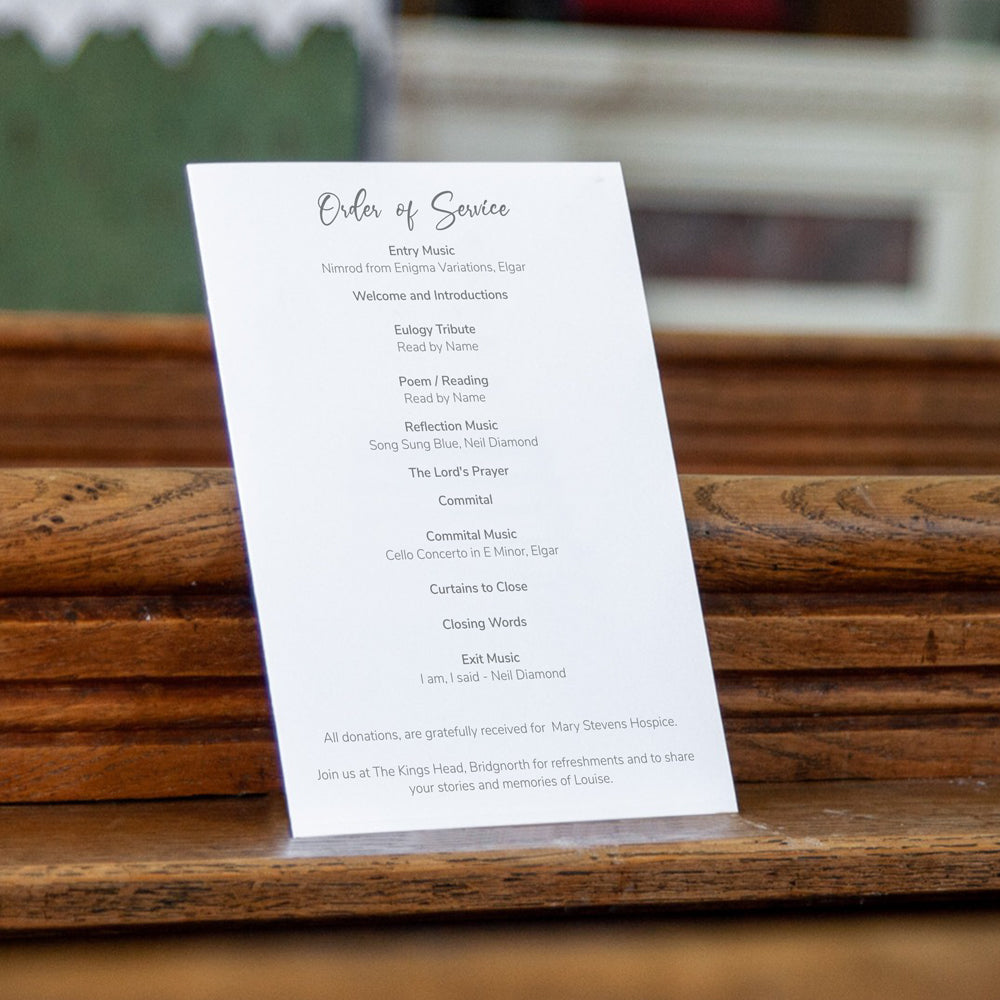 Order of Service
Entry Music
Nimrod from Enigma Variations, Elgar
Welcome and Introductions
Eulogy Tribute
Read by Name
Poem / Reading
Read by Name
Reflection Music
Song Sung Blue, Neil Diamond
The Lord's Prayer
Commital
Commital Music
Cello Concerto in E Minor, Elgar
Curtains to Close
Closing Words
Exit Music
I am, I said - Neil Diamond
All donations, are gratefully received for Mary Stevens Hospice.
Join us at The Kings Head, Bridgnorth for refreshments and to share
your stories and memories of Louise.